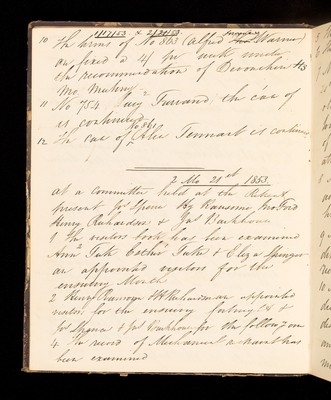 10 The terms of No 863 (Alfred Warner)
are fixed a 4/ per week under
the recommendation of Devonshire Hs
11 No 754 Lucy Farrand, the case of
is continued
12 The case of Alex Tennart is continued
2 Mo 21st 1853
at a committee held at the Retreat
present Jos Spence Hy Ransome
Henry Richardson & Jas Backhouse
1 The visitors book has been examined
Ann Tuke Esther Tuke & Eliza Spence
are appointed visitors for the
ensuing Month
2 Henry Ransome & H Richardson appointed
visitors for the ensuing fortnight &
Jos Spence & Jas Backhouse for the following one
4 The record of Mechanical restraint has
been examined